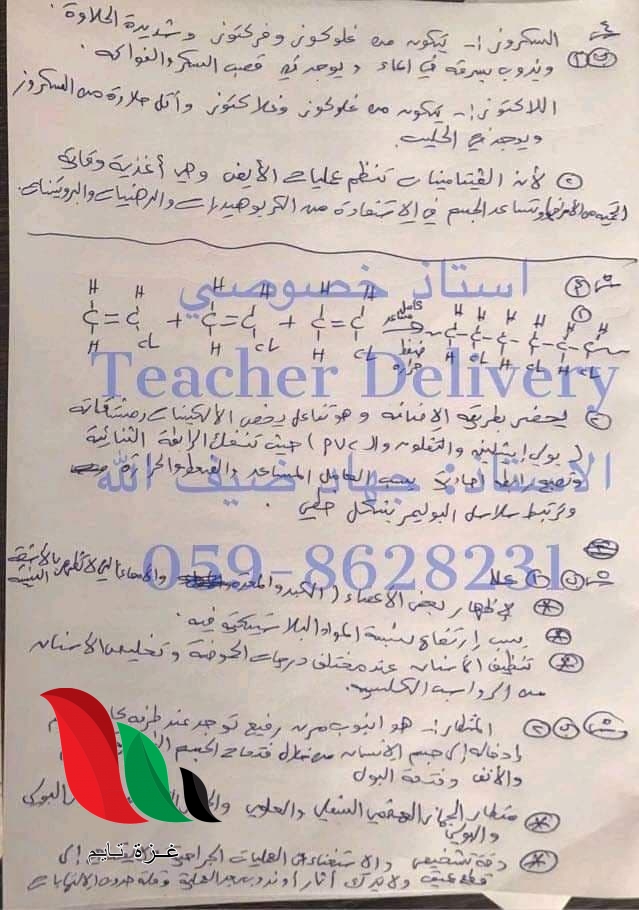 السكروز :- يتكون من غلوكوز وفركتوز وشديدة الحلاوة .
ويذوب بسرعة في الماء ويوجد في قصب السكر والفواكه .
اللاكتوز :- يتكون من غلوكوز وغلاكتوز وأقل حلاوة من السكروز
ويوجد في الحليب .
② لأن الفيتامينات تنظم عمليات الأيض وهي أغذية وقائية
وتساعد الجسم في الاستفادة من الكربوهيدرات والدهنيات والبروتينات.
استاذ خصوصي
H H H H H H
C = C + C = C + C = C عامل مساعد ضغط حرارة
H CL H CL H CL
Teacher Delivery
② يحضر بطريقة الإضافة وهو تفاعل يخص الألكينات ومشتقاته
( بولي إيثيلين والتفلون والـ PVC ) حيث تنفك الرابطة الثنائية
وتصبح رابطة أحادية بسبب العامل المساعد والضغط والحرارة
وترتبط سلاسل البوليمر بشكل خطي .
الاستاذ: جهاد ضيف الله
059-8628231
لإظهار بعض الأعضاء ( الكبد والمعدة والأمعاء ) التي لا تظهر بالأشعة
بسبب إرتفاع نسبة المواد البلاستيكية فيه .
تنظيف الأسنان عند مختلف درجات الحموضة وتخليص الأسنان
من الرواسب الكلسية .
المنظار :- هو انبوب مرن رفيع توجد عند طرفه
إدخاله إلى جسم الإنسان من خلال فتحات الجسم
والأنف وفتحة البول
منظار الجهاز الهضمي السفلي والعلوي
والبولي
دقة تشخيص والاستغناء عن العمليات الجراحية إلى
قطع عميق ولا يترك آثار أو ندوب بعد العملية وقلة حدوث الالتهابات
غزة تايم